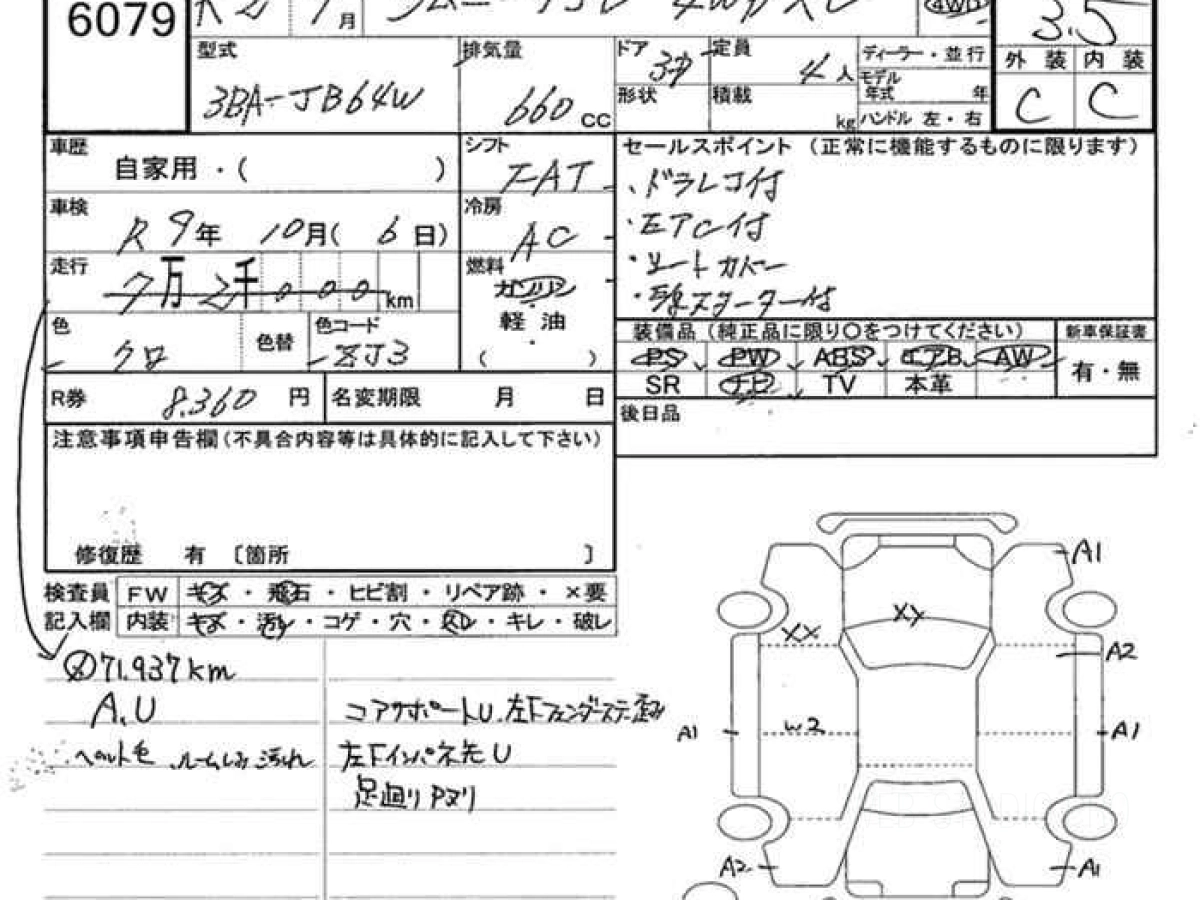 6079
R2 9月 4WD XC 4WD 3.5
型式 排気量 ドア 3 定員 4人 ディーラー・並行 外装 内装
モデル年式 年
3BA-JB64W 660cc 形状 積載 kg ハンドル 左・右 C C
車歴 自家用・( ) シフト FAT セールスポイント (正常に機能するものに限ります)
・ドラレコ付
車検 R9年 10月(6日) 冷房 AC ・社アルミ付
走行 7万2千000km 燃料 ガソリン ・シートカバー
軽油 ・エンジンスターター付
( )
色 クロ 色替 色コード ZJ3
装備品 (純正品に限り○をつけてください) 新車保証書
PS PW ABS エアB AW 有・無
SR ナビ TV 本革
R券 8.360円 名変期限 月 日 後日品
注意事項申告欄(不具合内容等は具体的に記入して下さい)
修復歴 有 〔箇所 〕
検査員 FW キズ・飛石・ヒビ割・リペア跡・×要
記入欄 内装 キズ・汚レ・コゲ・穴・スレ・キレ・破レ
71.937km
A.U
ペット毛 ルームしみ汚れ
コアサポートU.左Fフェンダーステー歪み
左Fインパネ先U
足廻りPヌリ
A1
XY
XX
A2
A1
W2
A1
A2
A1